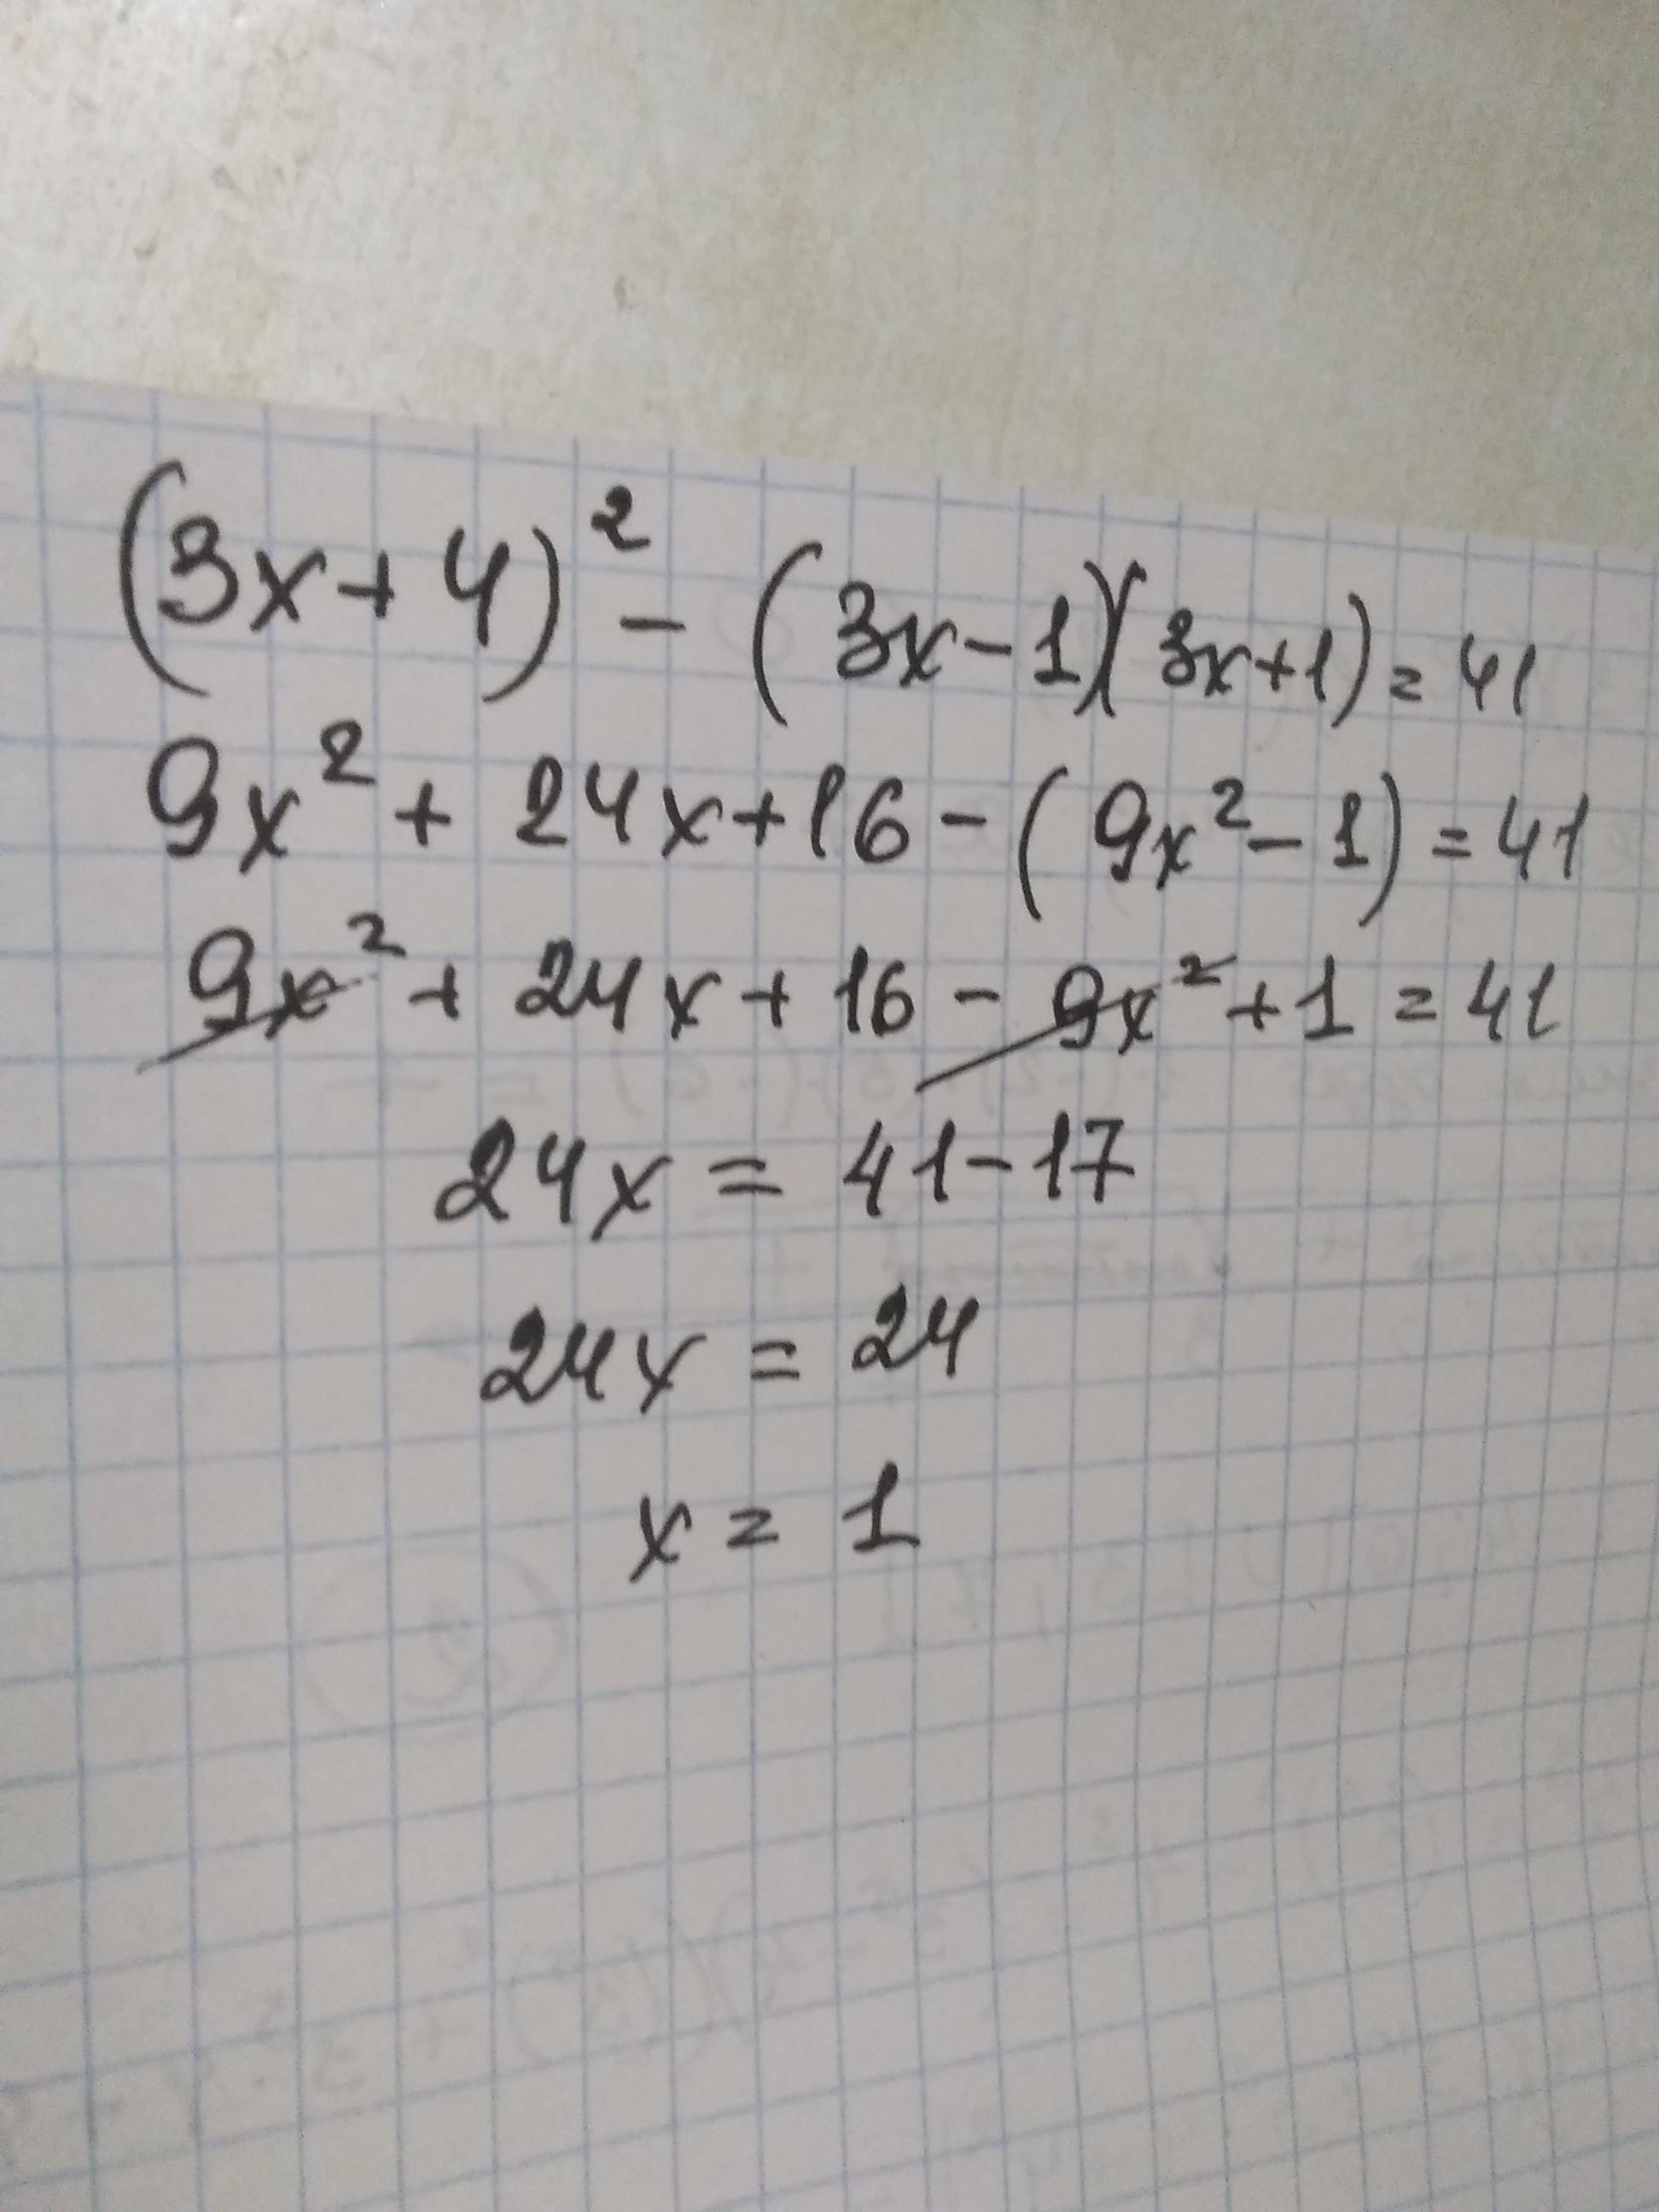 (3x+4)² - (3x-1)(3x+1) = 41
9x² + 24x + 16 - (9x² - 1) = 41
9x² + 24x + 16 - 9x² + 1 = 41
24x = 41 - 17
24x = 24
x = 1